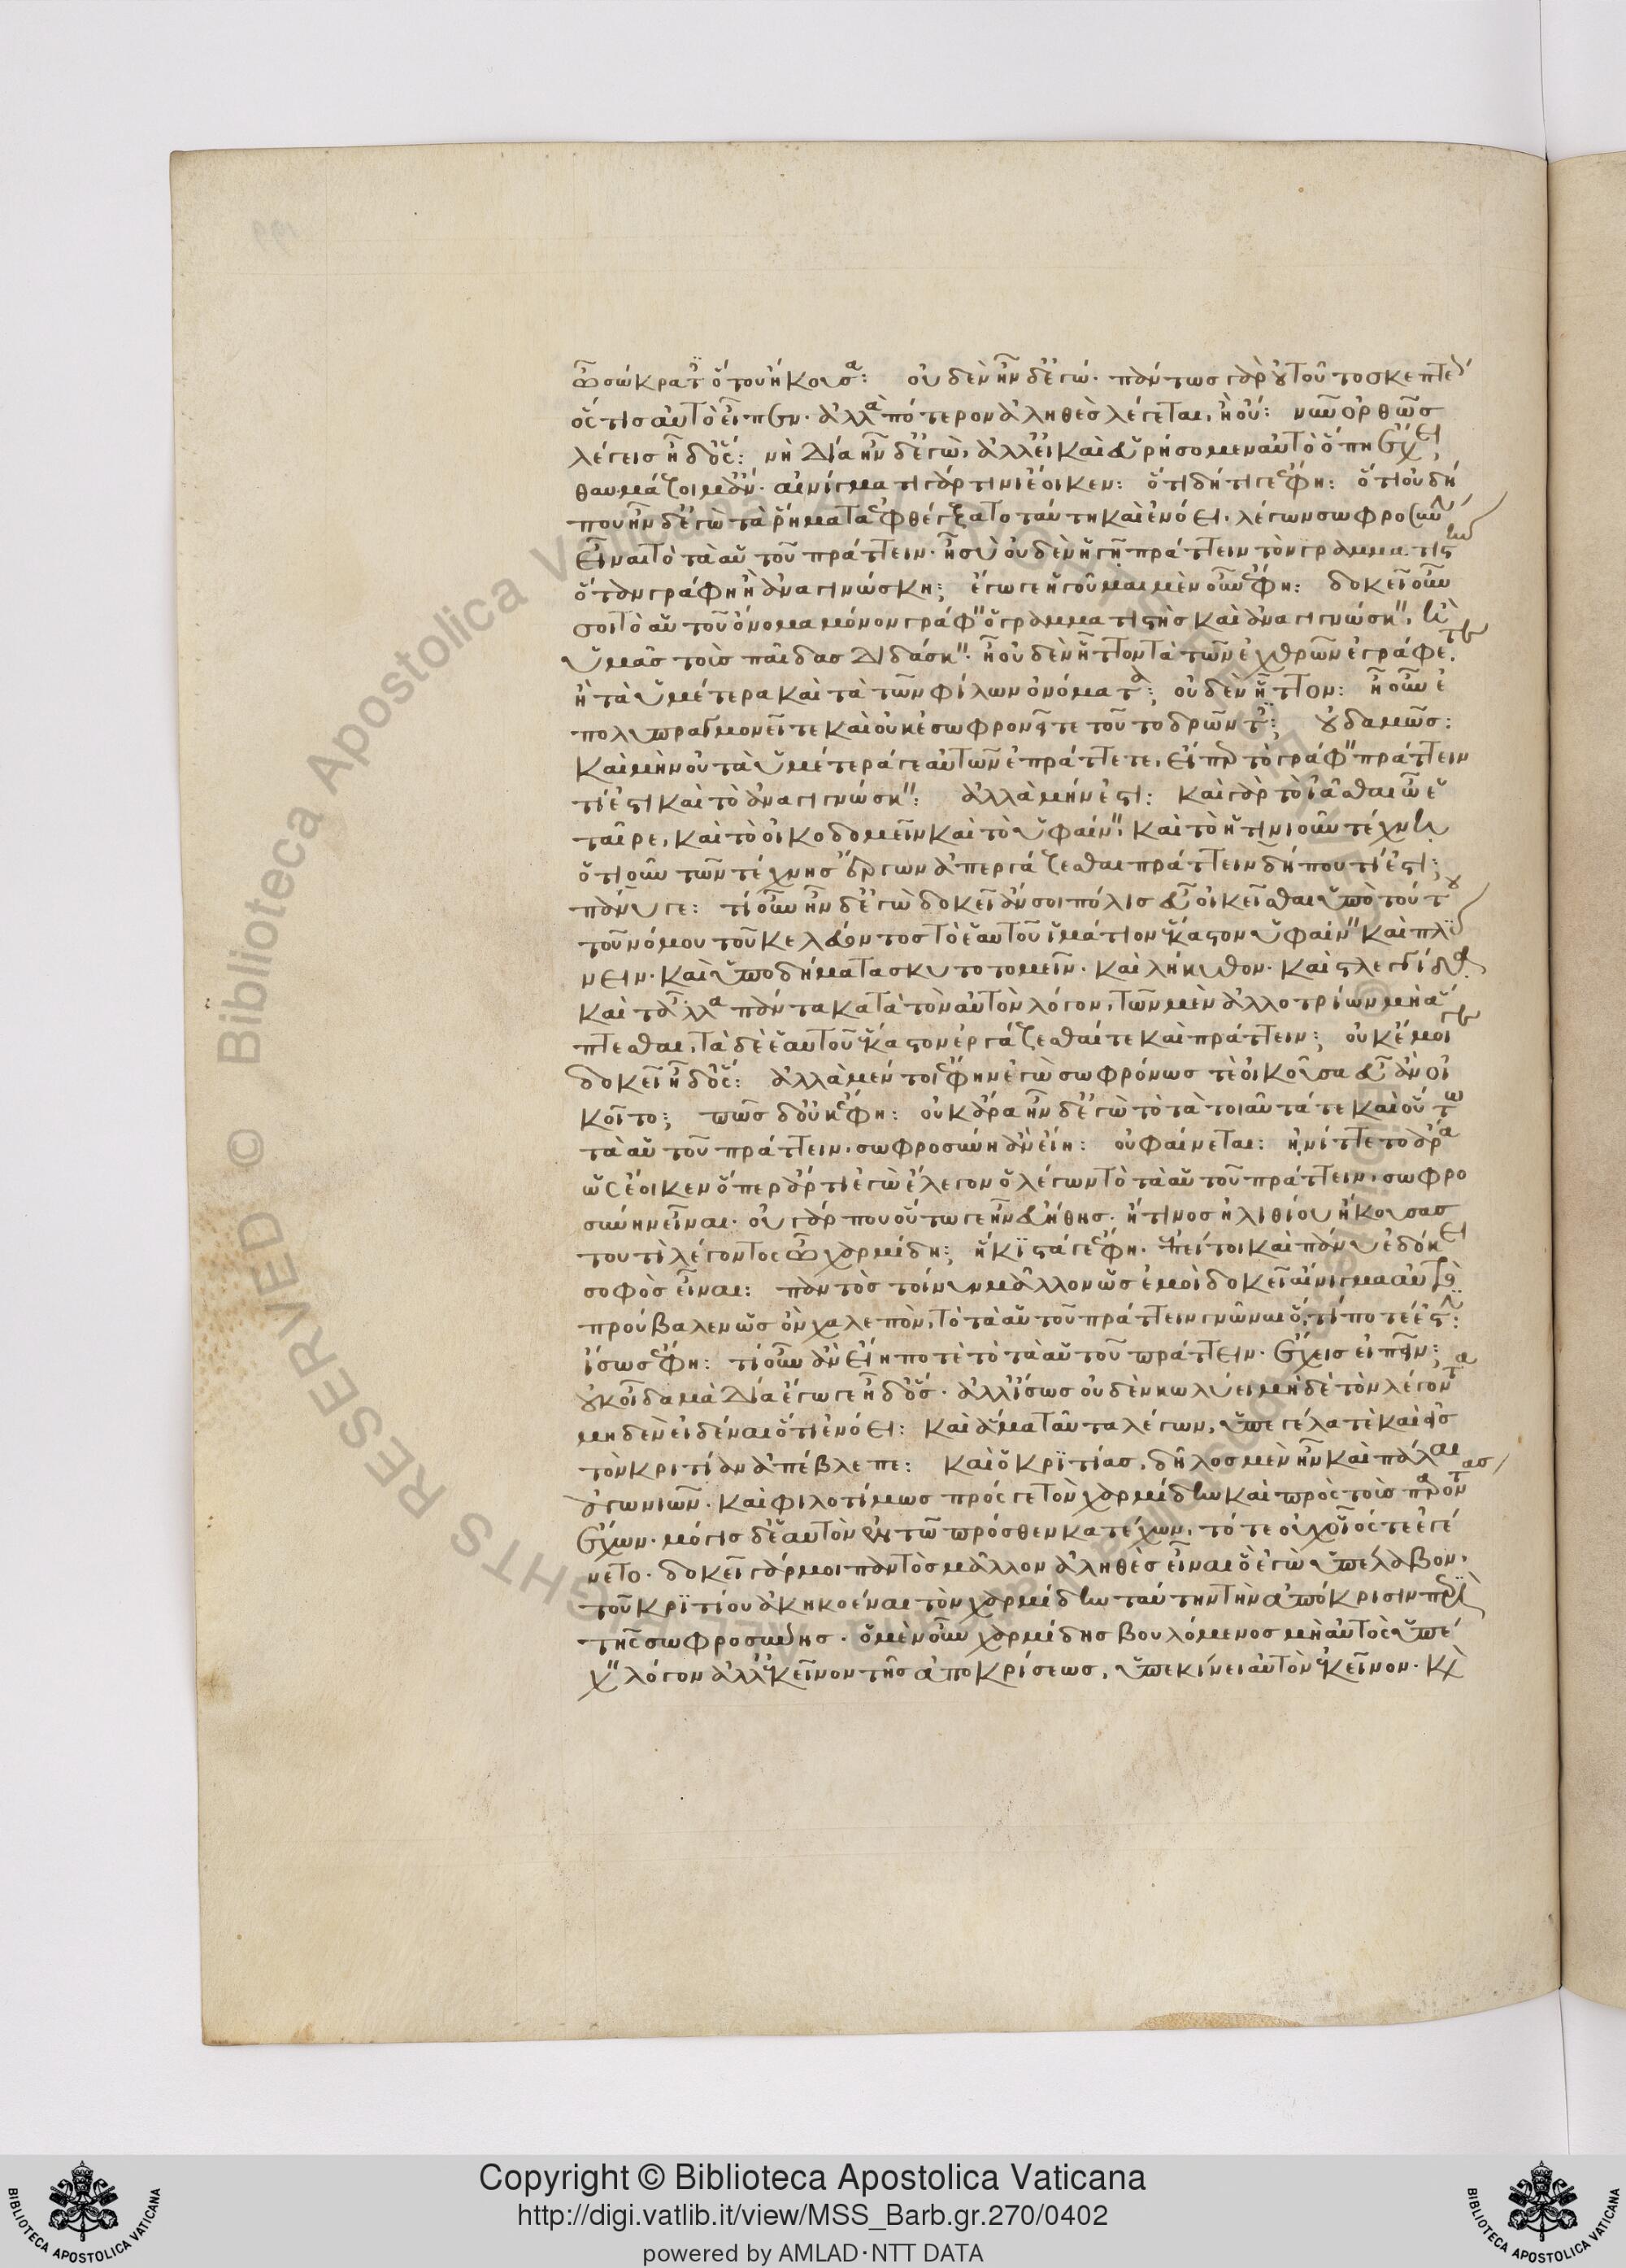 ὦ σώκρατες ὅτου ἤκουσα: οὐδὲν ἦν δ' ἐγώ· πάντως γὰρ οὐ τοῦτο σκεπτέον
ὅστις αὐτὸ εἶπεν· ἀλλὰ πότερον ἀληθὲς λέγεται, ἢ οὔ: νῦν ὀρθῶς
λέγεις ἦ δ' ὅς: νὴ Δία ἦν δ' ἐγώ, ἀλλ' εἰ καὶ εὑρήσομεν αὐτὸ ὅπη ἔχει,
θαυμάζοιμ' ἄν· αἰνίγματι γάρ τινι ἔοικεν: ὅτι δὴ τί γε ἔφη: ὅτι οὐ δή
που ἦν δ' ἐγὼ τὰ ῥήματα ἐφθέγξατο ταύτῃ καὶ ἐνόει, λέγων σωφροσύνην
εἶναι τὸ τὰ αὑτοῦ πράττειν· ἢ σὺ οὐδὲν ἡγῇ πράττειν τὸν γραμματιστὴν
ὅταν γράφῃ ἢ ἀναγινώσκῃ; ἔγωγε ἡγοῦμαι μὲν οὖν ἔφη: δοκεῖ οὖν
σοι τὸ αὑτοῦ ὄνομα μόνον γράφειν ὁ γραμματιστὴς καὶ ἀναγινώσκειν, ἢ
ὑμᾶς τοὺς παῖδας διδάσκειν· ἢ οὐδὲν ἧττον τὰ τῶν ἐχθρῶν ἐγράφετε,
ἢ τὰ ὑμέτερα καὶ τὰ τῶν φίλων ὀνόματα; οὐδὲν ἧττον: ἦ οὖν ἐ
πολυπραγμονεῖτε καὶ οὐκ ἐσωφρονεῖτε τοῦτο δρῶντες: οὐδαμῶς:
καὶ μὴν οὐ τὰ ὑμέτερά γε αὐτῶν ἐπράττετε, εἴπερ τὸ γράφειν πράττειν
τί ἐστι καὶ τὸ ἀναγινώσκειν: ἀλλὰ μήν ἐστι: καὶ γὰρ τὸ ἰᾶσθαι ὦ ἑ
ταῖρε, καὶ τὸ οἰκοδομεῖν καὶ τὸ ὑφαίνειν, καὶ τὸ ᾑτινιοῦν τέχνῃ
ὁτιοῦν τῶν τέχνης ἔργων ἀπεργάζεσθαι πράττειν δήπου τί ἐστι;
πάνυ γε: τί οὖν ἦν δ' ἐγὼ δοκεῖ ἄν σοι πόλις εὖ οἰκεῖσθαι ὑπὸ τούτου
τοῦ νόμου τοῦ κελεύοντος τὸ ἑαυτοῦ ἱμάτιον ἕκαστον ὑφαίνειν καὶ πλύ
νειν· καὶ ὑποδήματα σκυτοτομεῖν· καὶ λήκυθον· καὶ στλεγγίδα
καὶ τἆλλα πάντα κατὰ τὸν αὐτὸν λόγον, τῶν μὲν ἀλλοτρίων μὴ ἅ
πτεσθαι, τὰ δὲ ἑαυτοῦ ἕκαστον ἐργάζεσθαί τε καὶ πράττειν; οὐκ ἔμοιγε
δοκεῖ ἦ δ' ὅς: ἀλλὰ μέντοι ἔφην ἐγὼ σωφρόνως τὲ οἰκοῦσα εὖ ἂν οἰ
κοῖτο; πῶς δ' οὐκ ἔφη: οὐκ ἄρα ἦν δ' ἐγὼ τὸ τὰ τοιαῦτά τε καὶ οὕτω
τὰ αὑτοῦ πράττειν, σωφροσύνη ἂν εἴη: οὐ φαίνεται: ᾐνίττετο ἄρα
ὡς ἔοικεν ὅπερ ἄρτι ἐγὼ ἔλεγον ὁ λέγων τὸ τὰ αὑτοῦ πράττειν, σωφρο
σύνην εἶναι· οὐ γάρ που οὕτω γε ἦν εὐήθης· ἤ τινος ἠλιθίου ἤκουσας
τουτὶ λέγοντος ὦ χαρμίδη; ἥκιστά γε ἔφη· ἐπεί τοι καὶ πάνυ ἐδόκει
σοφὸς εἶναι: παντὸς τοίνυν μᾶλλον ὡς ἐμοὶ δοκεῖ αἴνιγμα αὐτὸ
προύβαλεν ὡς ὂν χαλεπὸν, τὸ τὰ αὑτοῦ πράττειν γνῶναι ὅ, τί ποτέ ἐστιν:
ἴσως ἔφη: τί οὖν ἂν εἴη ποτὲ τὸ τὰ αὑτοῦ πράττειν· ἔχεις εἰπεῖν;
οὐκ οἶδα μὰ Δία ἔγωγε ἦ δ' ὅς· ἀλλ' ἴσως οὐδὲν κωλύει μηδὲ τὸν λέγοντα
μηδὲν εἰδέναι ὅτι ἐνόει: καὶ ἅμα ταῦτα λέγων, ὑπεγέλα τὲ καὶ εἰς
τὸν κριτίαν ἀπέβλεπε: καὶ ὁ κριτίας, δῆλος μὲν ἦν καὶ πάλαι
ἀγωνιῶν· καὶ φιλοτίμως πρός γε τὸν χαρμίδην καὶ πρὸς τοὺς παρόντας
ἔχων· μόγις δ' ἑαυτὸν ἐν τῷ πρόσθεν κατέχων, τότε οὐχ οἷός τε ἐγέ
νετο· δοκεῖ γάρ μοι παντὸς μᾶλλον ἀληθὲς εἶναι ὃ ἐγὼ ὑπέλαβον,
τοῦ κριτίου ἀκηκοέναι τὸν χαρμίδην ταύτην τὴν ἀπόκρισιν περὶ
τῆς σωφροσύνης· ὁ μὲν οὖν χαρμίδης βουλόμενος μὴ αὐτὸς ὑπέ
χειν λόγον ἀλλ' ἐκεῖνον τῆς ἀποκρίσεως, ὑπεκίνει αὐτὸν ἐκεῖνον· καὶ
Copyright © Biblioteca Apostolica Vaticana
http://digi.vatlib.it/view/MSS_Barb.gr.270/0402
powered by AMLAD·NTT DATA